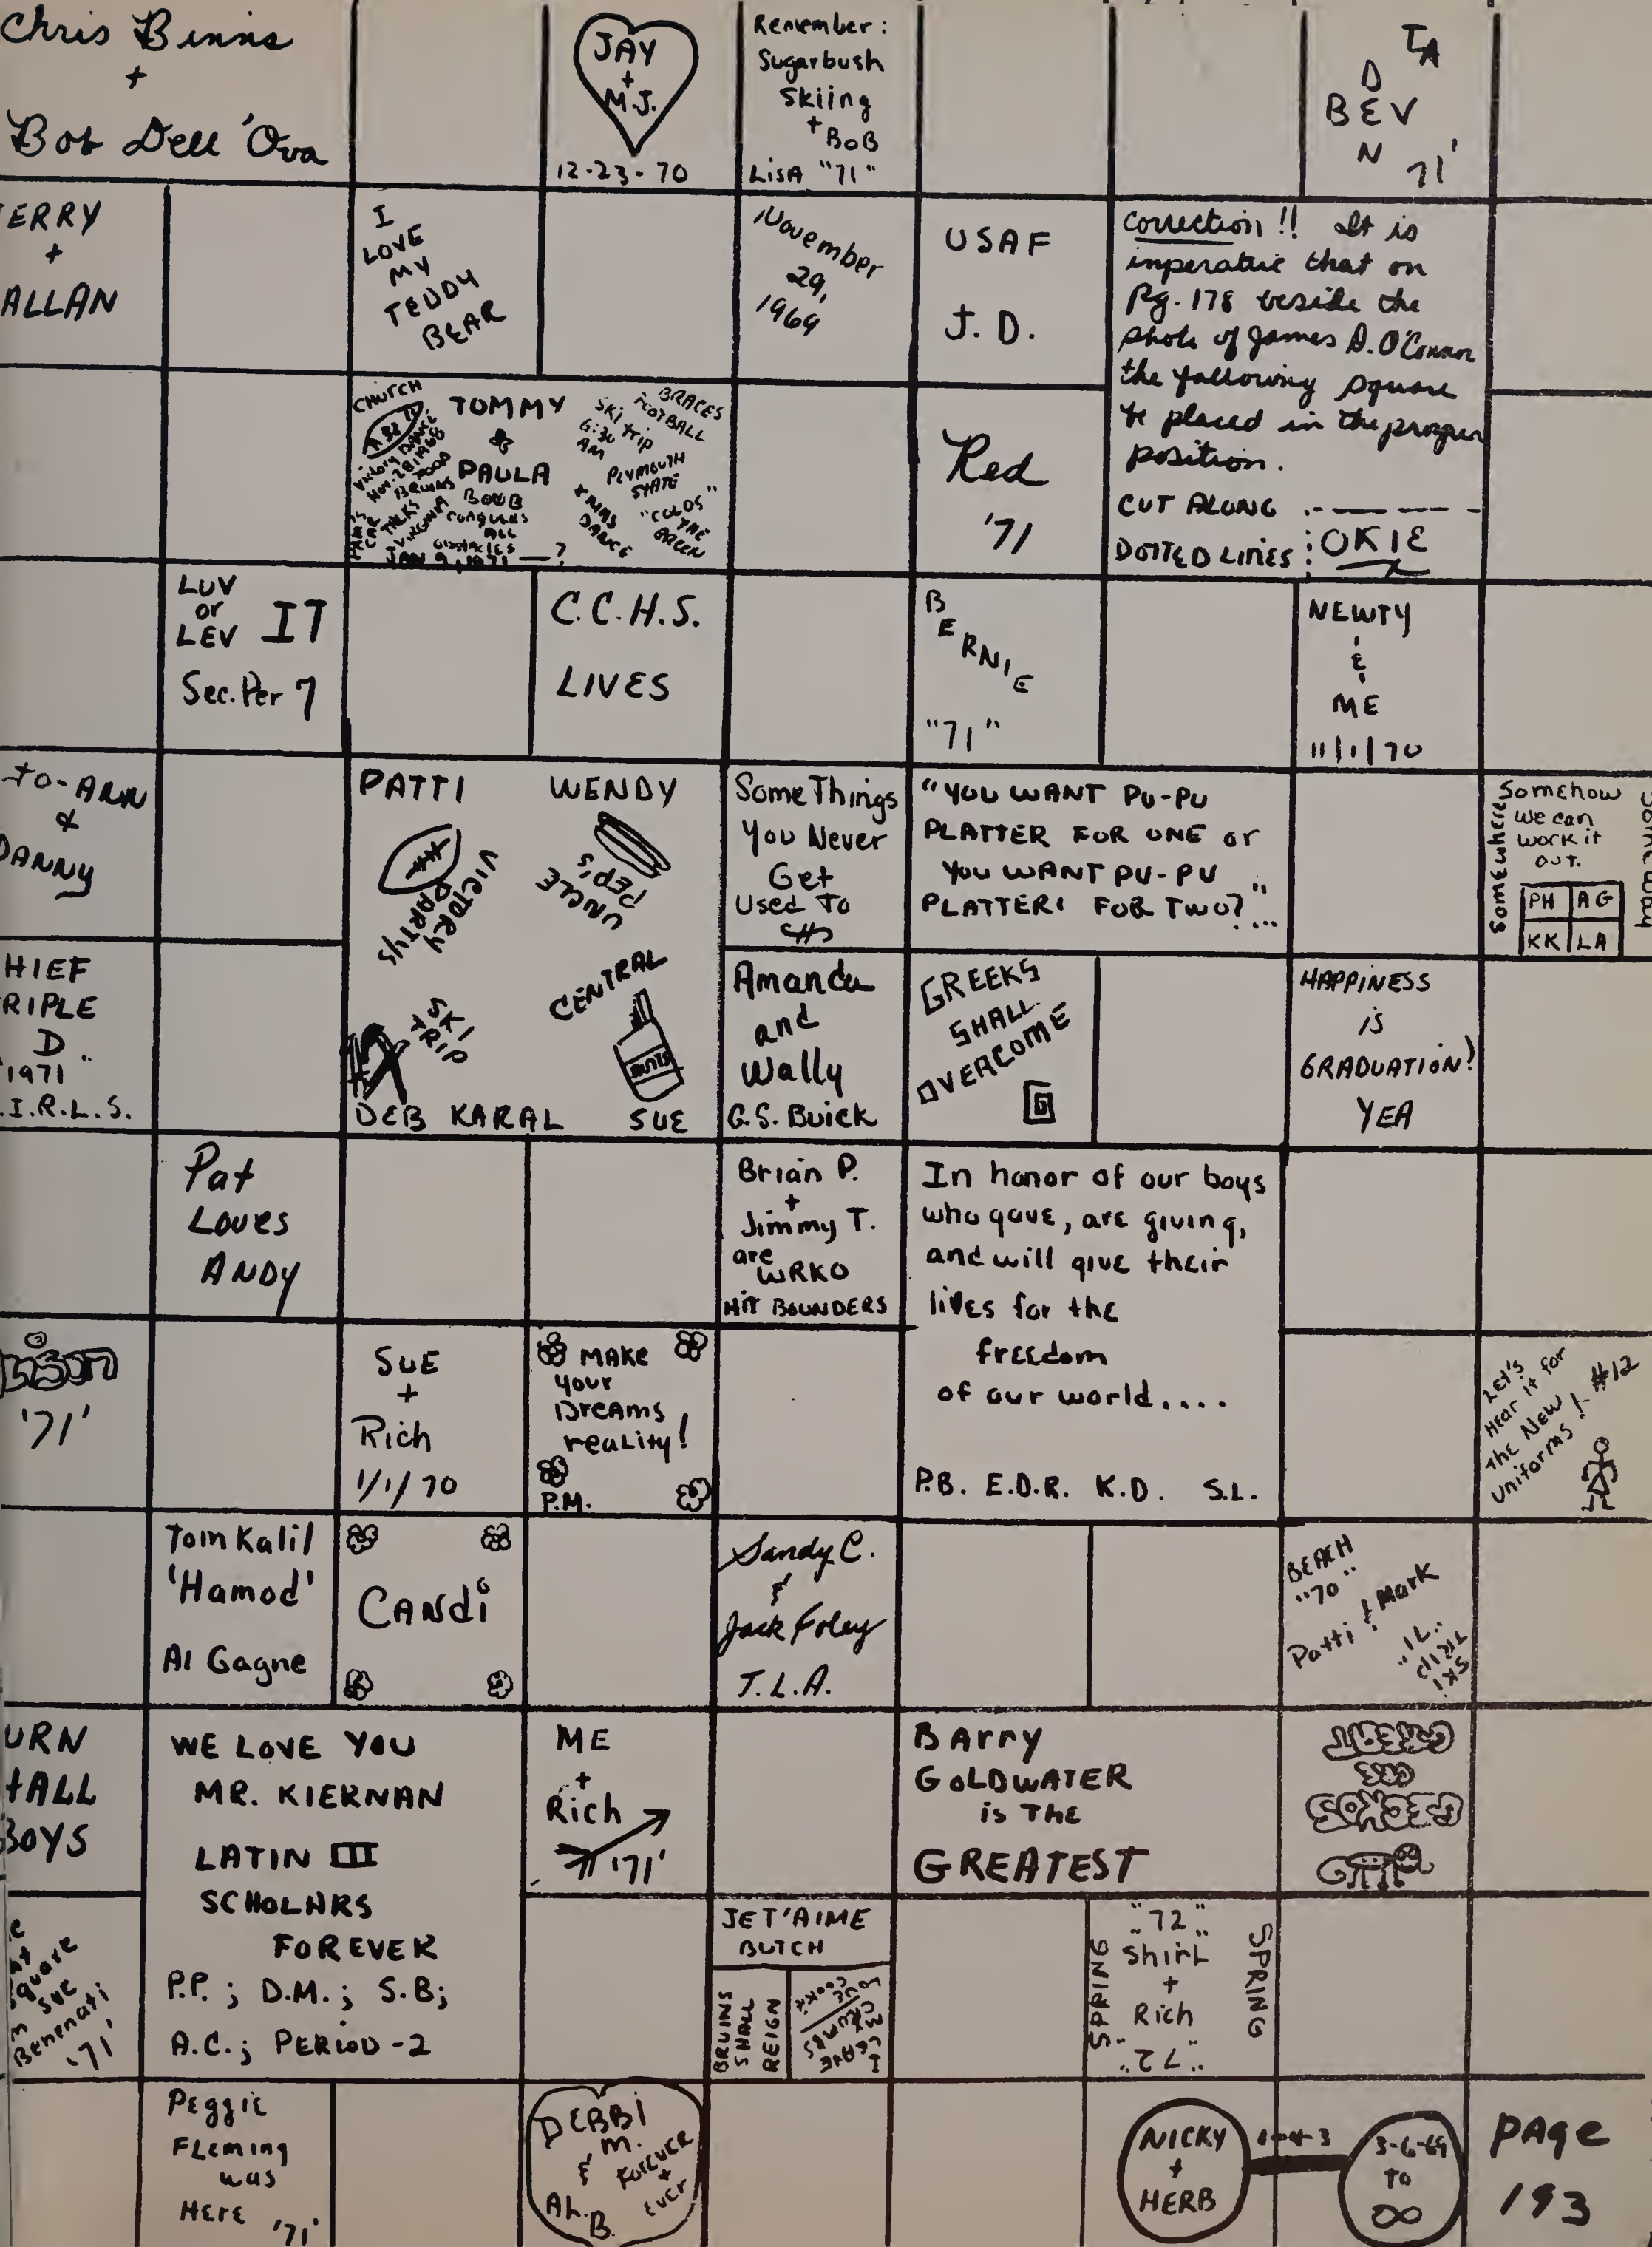 Chris Binns
+
Bob Dell'Ova
JAY
+
M.J.
12-23-70
Remember:
Sugarbush
Skiing
+ BOB
LISA "71"
TA
D
BEV
N
71'
ERRY
+
ALLAN
I
LOVE
MY
TEDDY
BEAR
November
29,
1969
USAF
J. D.
correction!! It is
imperative that on
Pg. 178 beside the
photo of James D. O'Connor
the following square
be placed in the proper
position.
CUT ALONG
DOTTED LINES
OKIE
CHUTCH
# 32
Victory DANCE
Nov. 28 1968
FOOD
BRUINS
TALKS
VIRGINIA
PAM'S
CAR
TOMMY
&
PAULA
BOWB
CONQUERS
ALL
OBSTACLES
JAN 9, 1971 —?
SKI trip
6:30
AM
BRACES
FOOTBALL
PLYMOUTH
STATE
XMAS
DANCE
"COLDS"
THE
GREEN
Red
'71
LUV
or
LEV IT
Sec. Per 7
C.C.H.S.
LIVES
BERNIE
"71"
NEWTY
&
ME
11/1/70
JO-ANN
&
DANNY
PATTI WENDY
VICTORY
PARTYS
UNCLE
PED'S
SKI
TRIP
CENTRAL
BUTTS
DEB KARAL SUE
Some Things
You Never
Get
Used To
"YOU WANT PU-PU
PLATTER FOR ONE or
YOU WANT PU-PU
PLATTER FOR TWO?"...
Somehow
we can
work it
out.
Somewhere
Someway
PH AG
KK LA
HIEF
RIPLE
D
1971"
.I.R.L.S.
Amanda
and
Wally
G.S. Buick
GREEKS
SHALL
OVERCOME
G
HAPPINESS
is
GRADUATION!
YEA
Pat
Loves
ANDY
Brian P.
+
Jimmy T.
are
WRKO
HIT BOUNDERS
In honor of our boys
who gave, are giving,
and will give their
lives for the
freedom
of our world....
P.B. E.D.R. K.D. S.L.
'71'
SUE
+
Rich
1/1/70
MAKE
your
Dreams
reality!
P.M.
LET'S
HEAR it for
THE NEW
uniforms!
#12
Tom Kalil
'Hamod'
Al Gagne
CANdi
Sandy C.
&
Jack Foley
T.L.A.
BEACH
"70"
Patti & Mark
"71"
SKI
TRIP
URN
HALL
BOYS
WE LOVE YOU
MR. KIERNAN
LATIN III
SCHOLARS
FOREVER
P.P.; D.M.; S.B;
A.C.; PERIOD-2
ME
+
Rich
'71'
BArry
GOLDWATER
is THE
GREATEST
GREAT
GEE
GECKOS
quare
SUE
Benenati
'71'
JE T'AIME
BUTCH
BRUINS
SHALL
REIGN
I
LEAVE
MY
CRUMBS
LOVE
COOKIE
"72"
Shirl
+
Rich
"72"
SPRING
SPRING
Peggie
Fleming
was
Here '71'
DEBBI
M.
&
AL.
B.
FOREVER
+
EVER
NICKY
+
HERB
1-4-3
3-6-69
TO
∞
PAGE
193